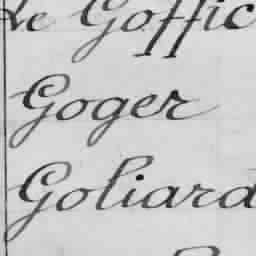 Le Goffic
Goger
Goliard